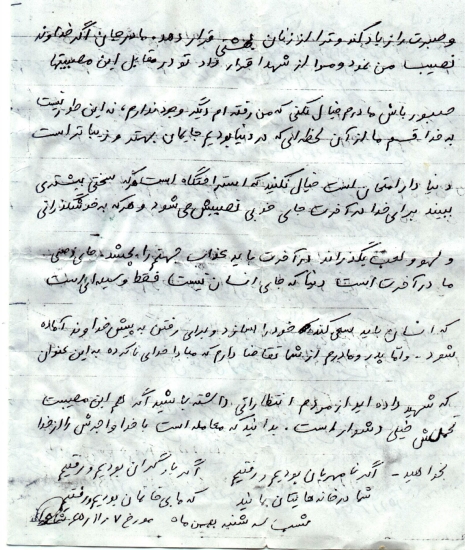 و صبرت را زیاد کند و ترا از زنان بهشتی قرار دهد. مادر جان اگر خداوند
نصیب من نمود و مرا از شهدا قرار داد تو در مقابل این مصیبتها
صبور باش مادرم خیال نکنی که من رفته ام دیگر وجود ندارم، نه این طور نیست
به خدا قسم ما از آن لحظه ای که در دنیا بودیم جایمان بهتر و زیباتر است
دنیا دار امتحان است خیال نکنید که استراحتگاه است هرکه سختی بیشتری
ببیند برای خدا در آخرت جای خوبی نصیبش می شود و هرکه به خوشگذرانی
و لهو و لعب بگذراند در آخرت باید عذاب جهنم را بچشد. جای اصلی
ما در آخرت است دنیا که جای انسان نیست فقط وسیله ای است
که انسان باید سعی کند خود را بسازد و برای رفتن به پیش خداوند آماده
شود. و اما پدر و مادرم از شما تقاضا دارم که مبادا خدای ناکرده به این عنوان
که شهید داده اید از مردم انتظاراتی داشته باشید اگر هم این مصیبت
تحملش خیلی دشوار است. بدانید که معامله است با خدا و اجرش را از خدا
بخواهید - اگر نامهربان بودیم و رفتیم اگر بار گران بودیم و رفتیم
شما در خانه هایتان بمانید که ما بی خانمان بودیم و رفتیم
شب سه شنبه بهمن ماه مورخ ۷/۱۱/۶۵